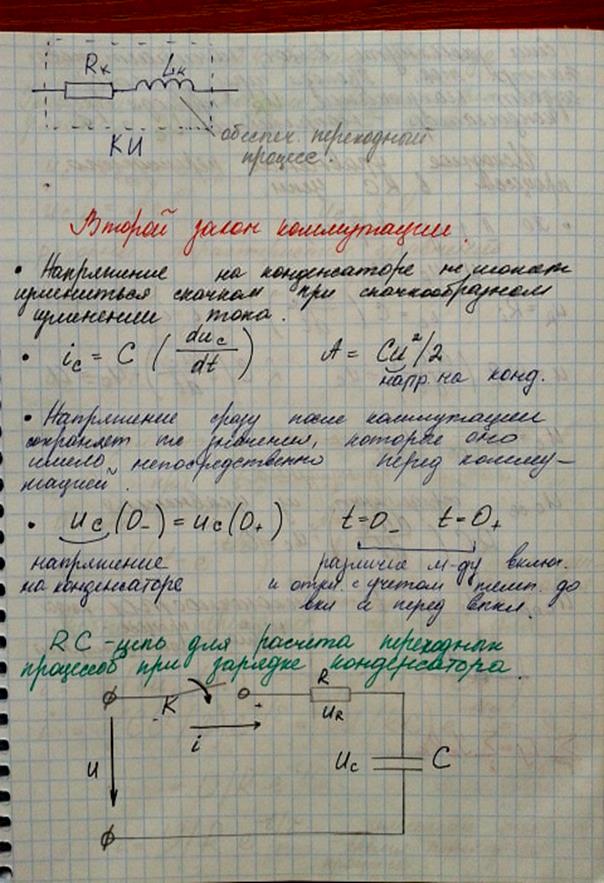 Rк Lк
КИ
обеспеч. переходный
процесс.
Второй закон коммутации.
• Напряжение на конденсаторе не может
измениться скачком при скачкообразном
изменении тока.
• ic = C (duc/dt) A = Cu²/2
напр. на конд.
• Напряжение сразу после коммутации
сохраняет те значения, которые оно
имело непосредственно перед комму-
тацией.
• uc(0-) = uc(0+) t=0- t=0+
напряжение различие м-ду включ.
на конденсаторе и откл. с учетом темп. до
вкл и перед
RC-цепь для расчета переходных
процессов при зарядке конденсатора.
K R
i uR
u uc C